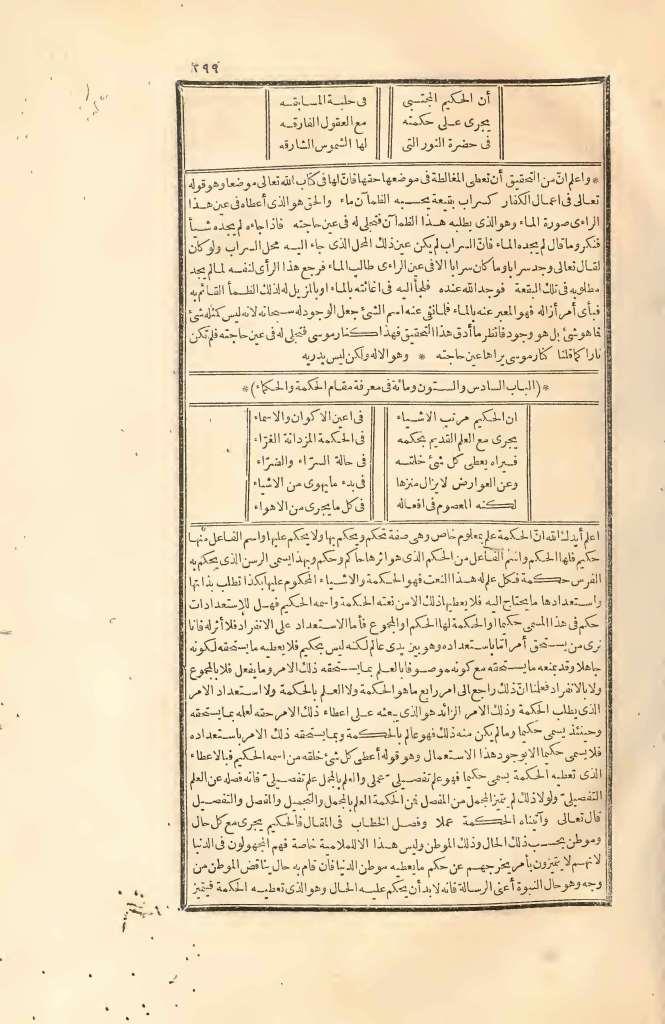 ٢٩٩
أن الحكيم المجتبى في حلبة المسابقه
يجرى على حكمته مع العقول الفارقه
فى حضرة النور التى لها الشموس الشارقه
* واعلم انّ من التحقيق أن تعطى المغالطة فى موضعها حقها فانّ لها فى كتاب الله تعالى موضعا وهو قوله
تعالى فى أعمال الكفار كسراب بقيعة يحسبه الظمآن ماء والحق هو الذى أعطاه فى عين هذا
الراءى صورة الماء وهو الذى يطلبه هذا الظمآن فتجلى له فى عين حاجته فاذا جاءه لم يجده شيأ
فنكر وما قال لم يجده الماء فانّ السراب لم يكن عين ذلك المحل الذى جاء اليه محل السراب ولو كان
لقال تعالى وجد سرابا وما كان سرابا الا فى عين الراءى طالب الماء فرجع هذا الرأى لنفسه لما لم يجد
مطلوبه فى تلك البقعة فوجد الله عنده فلجأ اليه فى اغاثته بالماء او بالمزيل له لذلك الظمأ القائم به
فبأى أمر أزاله فهو المعبر عنه بالماء فلما نفى عنه اسم الشئ جعل الوجود له سبحانه لانه ليس كمثله شئ
فما هو شئ بل هو وجود فانظر ما أدق هذا التحقيق فهذا كنار موسى فتجلى له فى عين حاجته فلم تكن
نارا كما قلنا كنار موسى يراها عين حاجته * وهو الاله ولكن ليس يدريه
* (الباب السادس والستون ومائة فى معرفة مقام الحكمة والحكماء) *
ان الحكيم مرتب الاشياء فى أعين الاكوان والاسماء
يجرى مع العلم القديم بحكمه فى الحكمة المزدانة الغرّاء
فتراه يعطى كل شئ خلقه فى حالة السرّاء والضرّاء
وعن العوارض لا يزال منزها فى بدء ما يهوى من الاشياء
لكنه المعصوم فى افعاله فى كل ما يجرى من الاهواء
اعلم أيدك الله انّ الحكمة علم بمعلوم خاص وهى صفة تحكم ويحكم بها ولا يحكم عليها واسم الفاعل منها
حكيم فلها الحكم واسم الفاعل من الحكم الذى هو اثرها حاكم وحكم وبهذا يسمى الرسن الذى يحكم به
الفرس حكمة فكل علم له هذا النعت فهو الحكمة والاشياء المحكوم عليها بكذا تطلب بذاتها
واستعدادها ما يحتاج اليه فلا يعطيها ذلك الا من نعته الحكمة واسمه الحكيم فهل للاستعدادات
حكم فى هذا المسمى حكيما او الحكمة لها الحكم او المجموع فأما الاستعداد على الانفراد فلا أثر له فانا
نرى من يستحق أمر اما باستعداده وهو بين يدى عالم لكنه ليس بحكيم فلا يعطيه ما يستحقه لكونه
جاهلا وقد يمنعه ما يستحقه مع كونه موصوفا بالعلم بما يستحقه ذلك الامر وما يفعل فلا بالمجموع
ولا بالانفراد فعلنا انّ ذلك راجع الى امر رابع ما هو الحكمة ولا العلم بالحكمة ولا استعداد الامر
الذى يطلب الحكمة وذلك الامر الزائد هو الذى يبعثه على اعطاء ذلك الامر حقه لعلمه بما يستحقه
وحينئذ يسمى حكيما وما لم يكن منه ذلك فهو عالم بالحكمة وبما يستحقه ذلك الامر باستعداده
فلا يسمى حكيما الا بوجود هذا الاستعمال وهو قوله أعطى كل شئ خلقه من اسمه الحكيم فبالاعطاء
الذى تعطيه الحكمة يسمى حكيما فهو علم تفصيلىّ عملى والعلم بالمجمل علم تفصيلىّ فانه فصله عن العلم
التفصيلىّ ولولا ذلك لم يتميز المجمل من المفصل فمن الحكمة العلم بالمجمل والتجميل والمفصل والتفصيل
قال تعالى وآتيناه الحكمة عملا وفصل الخطاب فى المقال فالحكيم يجرى مع كل حال
وموطن بحسب ذلك الحال وذلك الموطن وليس هذا الا للملامية خاصة فهم المجهولون فى الدنيا
لانهم لا يتميزون بأمر يخرجهم عن حكم ما يعطيه موطن الدنيا فان قام به حال يناقض الموطن من
وجه وهو حال النبوة أعنى الرسالة فانه لا بد أن يحكم عليه الحال وهو الذى تعطيه الحكمة فيتميز